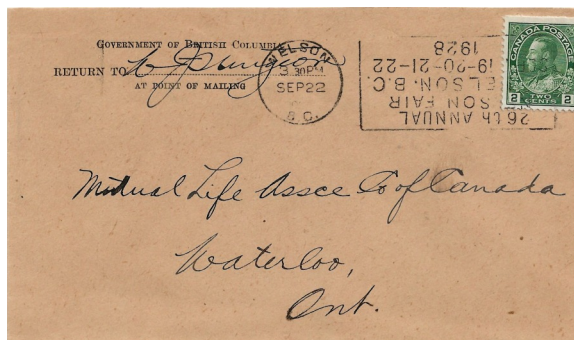 GOVERNMENT OF BRITISH COLUMBIA
RETURN TO
AT POINT OF MAILING
NELSON
30 PM
SEP 22
B.C.
26th ANNUAL
SON FAIR
ELSON. B.C.
19-20-21-22
1928
CANADA POSTAGE
2 TWO CENTS 2
Mutual Life Assce Co of Canada
Waterloo,
Ont.